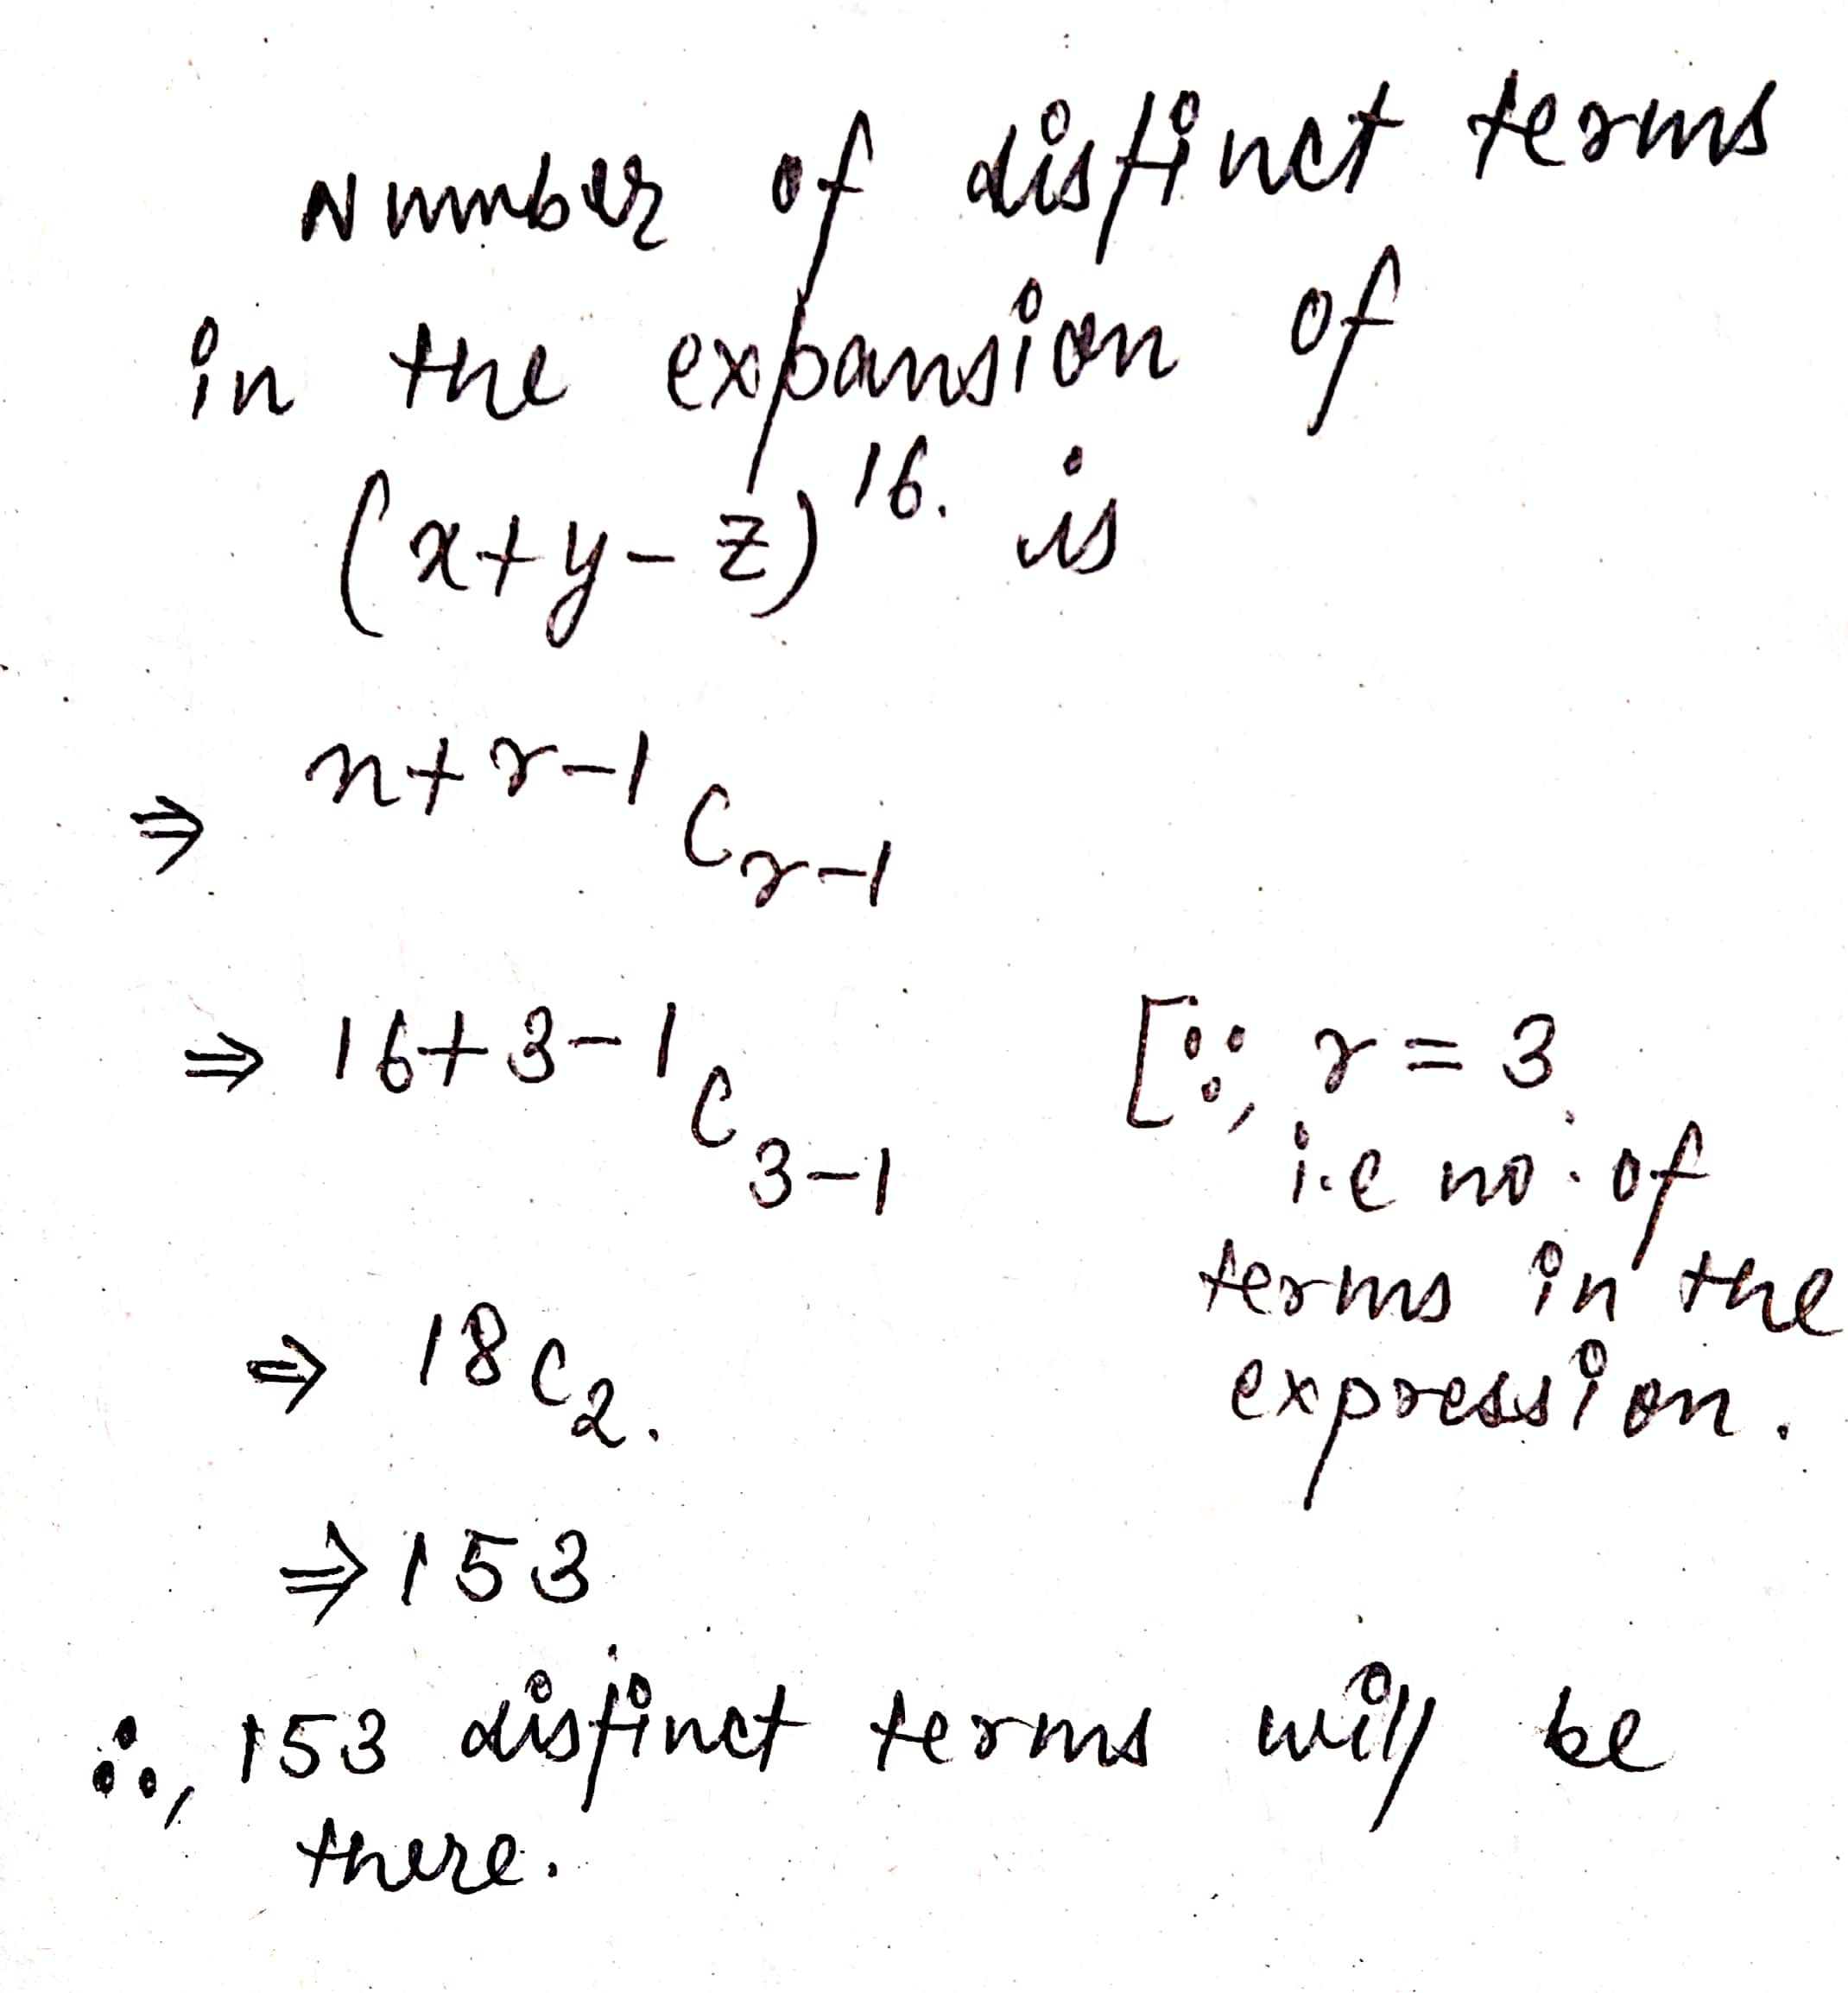 Number of distinct terms
in the expansion of
(x+y-z)^16. is
⇒ ^{n+r-1}C_{r-1}
⇒ ^{16+3-1}C_{3-1} [∵, r = 3
i.e no. of
terms in the
expression.
⇒ ^{18}C_2.
⇒ 153
∴, 153 distinct terms will be
there.